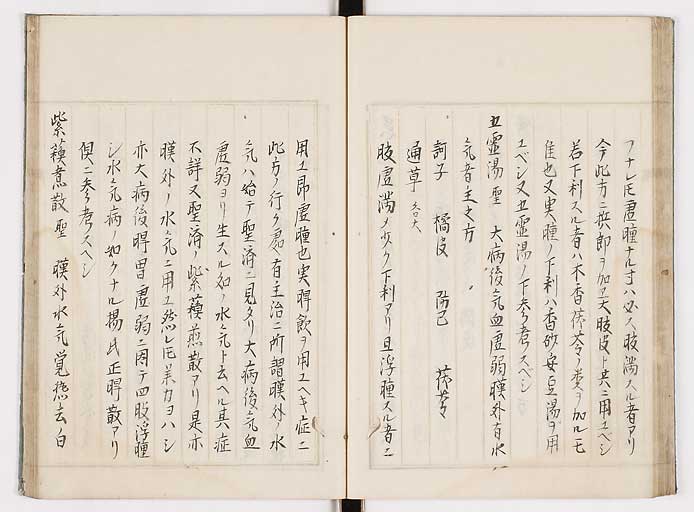 フナレ𪜈虚腫ナル寸ハ必ス腹満スル者アリ
今此方ニ檳榔ヲ加エ大腹皮ト共ニ用ユヘシ
若下利スル者ハ木香茯苓ノ類ヲ加ルモ
佳也又実腫ノ下利ハ香砂安皇湯ヲ用
ユベシ又五霊湯ノ下参考スベシ
五霊湯聖 大病後气血虚弱膜外有水
气者主之方
訶子 橘皮 防己 茯苓
通草 各大
腹虚満ノ少ク下利アリ且浮腫スル者ニ
用ユ即虚腫也実脾飲ヲ用ユヘキ症ニ
此方ノ行ク處有主治ニ所謂膜外ノ水
气ハ始テ聖済ニ見タリ大病後气血
虚弱ヨリ生スル処ノ水气ト云ヘル其症
不詳又聖済ノ紫蘓煎散アリ是亦
膜外ノ水气ニ用ユ然レ𪜈菓カヨハシ
亦大病後脾胃虚弱ニ因テ四肢浮腫
シ水气病ノ如クナル楊氏正脾散アリ
倶ニ参考スベシ
紫蘓煮散聖 膜外水气覚